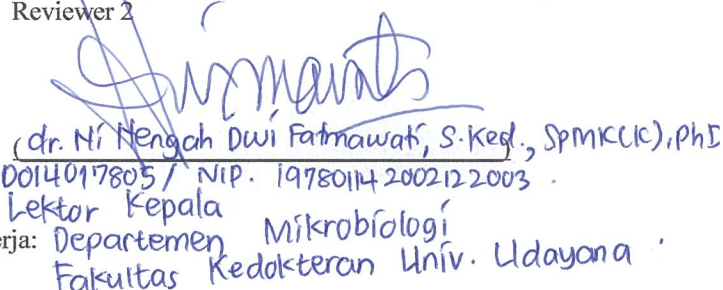 Reviewer 2
(dr. Ni Nengah Dwi Fatmawati, S.Ked., SpMK(K), PhD
0014017805 / NIP. 197801142002122003 .
Lektor Kepala
erja: Departemen Mikrobiologi
Fakultas Kedokteran Univ. Udayana .